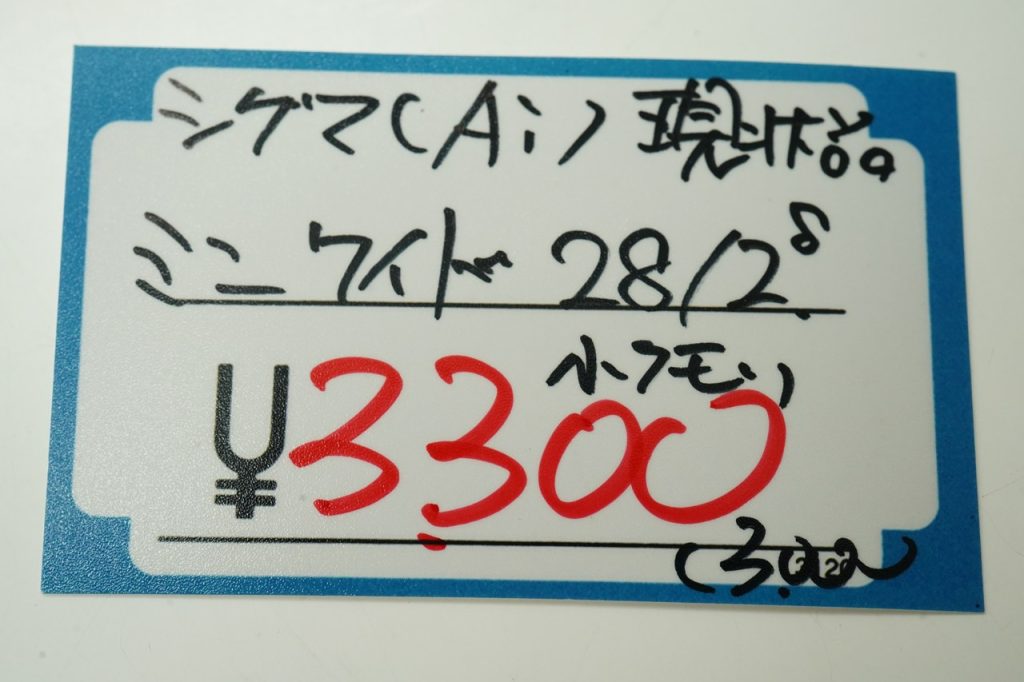 シグマ(Ai) 現状品
ミニワイド 28/2.8
小クモリ
¥3,300
(3,000)